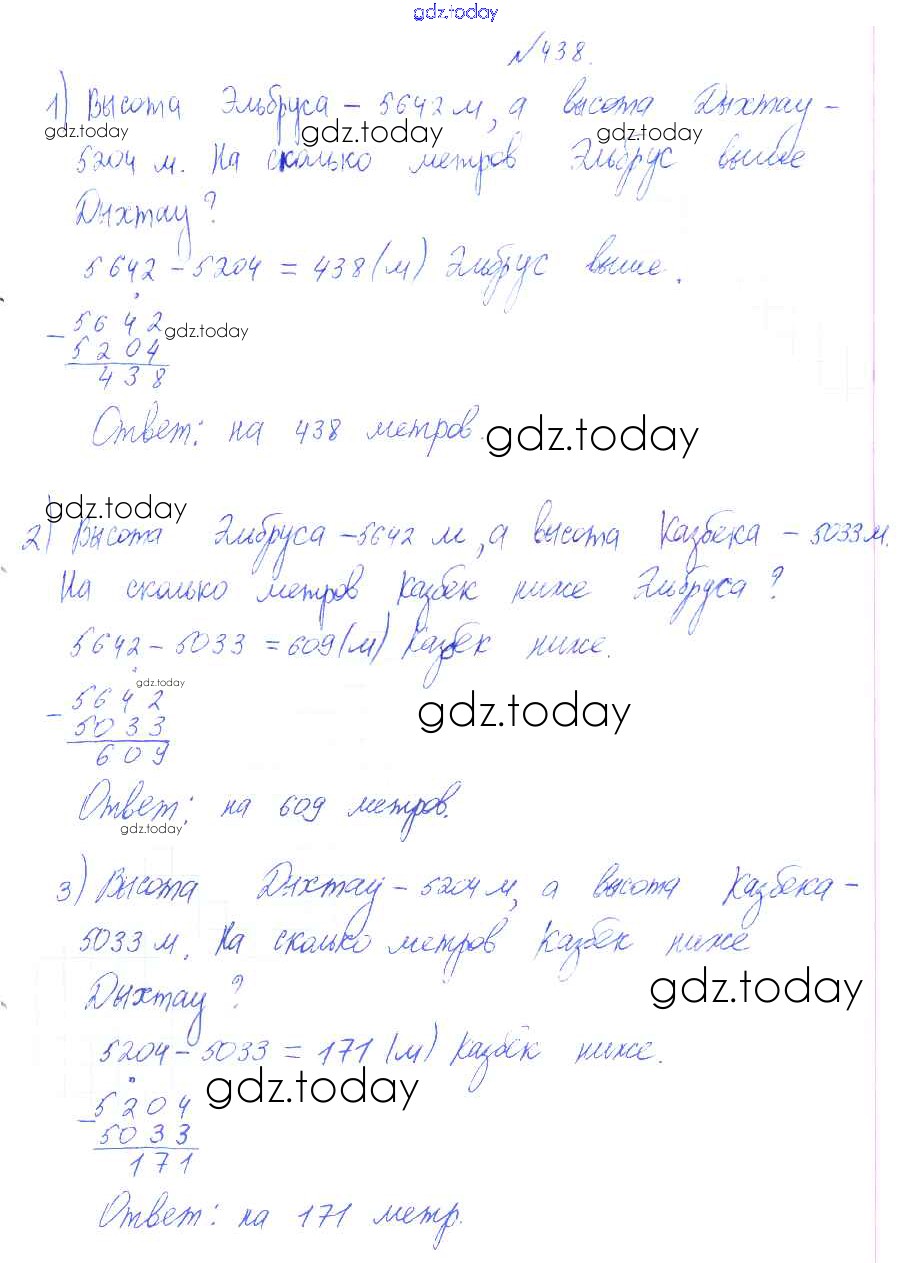 gdz.today
№438.
1) Высота Эльбруса – 5642 м, а высота Дыхтау –
gdz.today gdz.today gdz.today
5204 м. На сколько метров Эльбрус выше
Дыхтау?
5642 – 5204 = 438 (м) Эльбрус выше.
5642 gdz.today
– 5204
438
Ответ: на 438 метров. gdz.today
gdz.today
2) Высота Эльбруса – 5642 м, а высота Казбека – 5033 м.
На сколько метров Казбек ниже Эльбруса?
5642 – 5033 = 609 (м) Казбек ниже.
5642 gdz.today
– 5033 gdz.today
609
Ответ: на 609 метров.
gdz.today
3) Высота Дыхтау – 5204 м, а высота Казбека –
5033 м. На сколько метров Казбек ниже
Дыхтау? gdz.today
5204 – 5033 = 171 (м) Казбек ниже.
gdz.today
5204
– 5033
171
Ответ: на 171 метр.